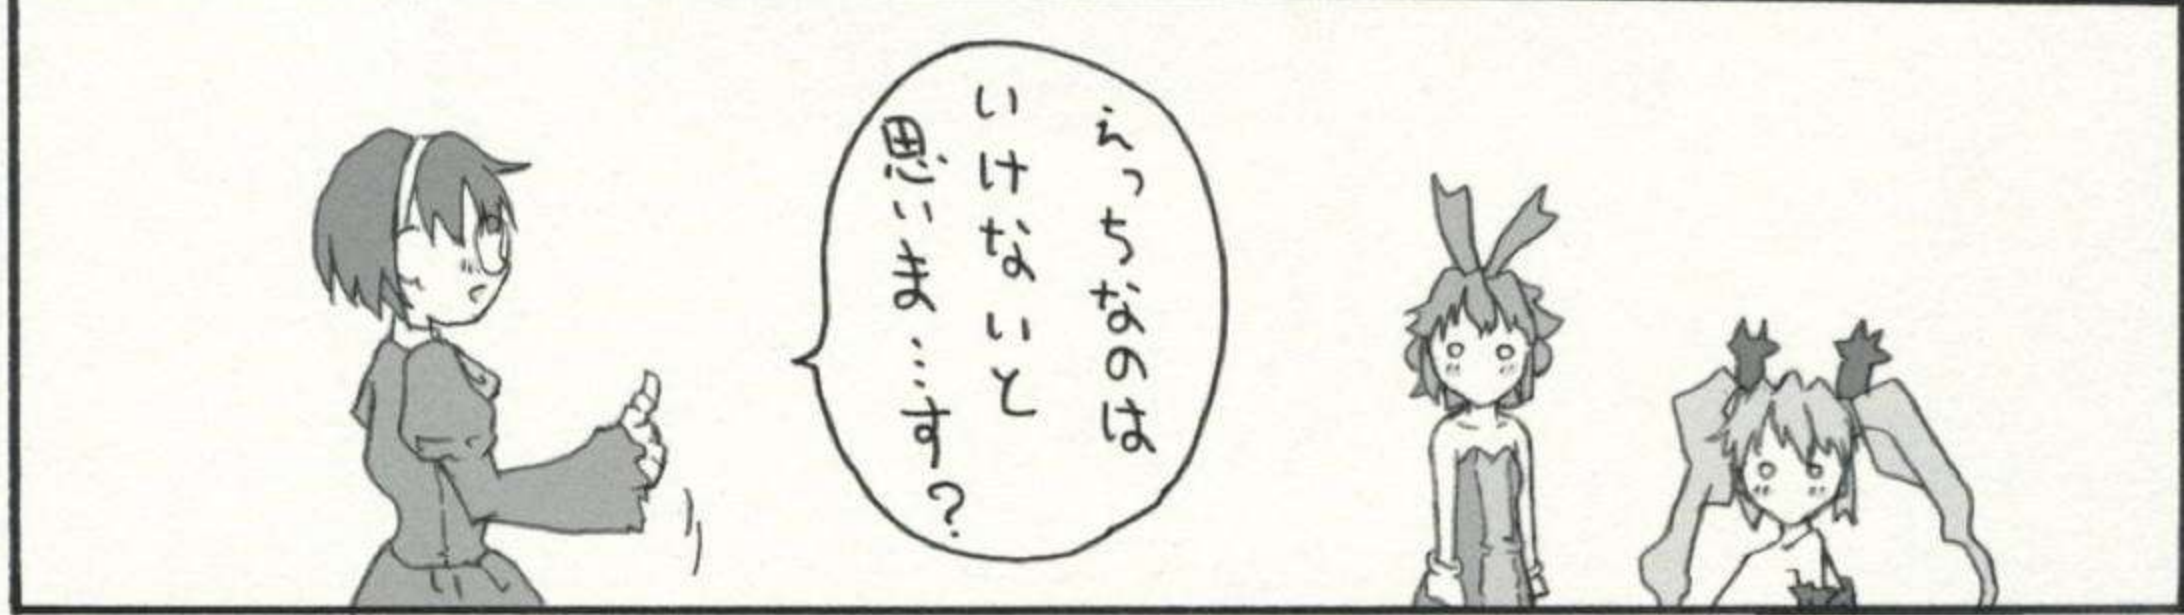 えっちなのは
いけないと
思いま…す?